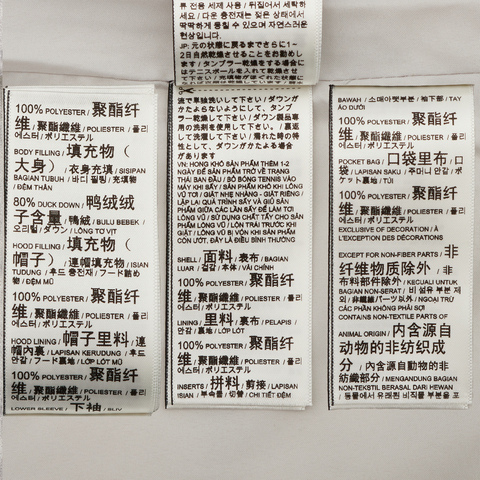 류 전용 세제 사용 / 뒤집어서 세탁하
세요 / 다운 충전재는 젖은 상태에서
딱딱하게 뭉칠 수 있으며 자연스러운
현상입니다.
JP: 元の状態に戻るまでさらに1~
2日自然乾燥させることをお勧めし
ます / タンブラー乾燥をする場合に
はテニスボールを入れて乾燥させて
100% POLYESTER / 聚酯纤
维 / 聚酯纖維 / POLIESTER / 폴리
에스터 / ポリエステル
BODY FILLING / 填充物(
大身) / 衣身充填 / SISIPAN
BAGIAN TUBUH / 바디 필링 / 充填物
/ ĐỆM THÂN
80% DUCK DOWN / 鸭绒绒
子含量 / 鴨絨 / BULU BEBEK /
오리털 / ダウン / LÔNG TƠ VỊT
HOOD FILLING / 填充物(
帽子) / 連帽充填 / ISIAN
TUDUNG / 후드 충전재 / フード詰め
物 / ĐỆM MŨ
100% POLYESTER / 聚酯纤
维 / 聚酯纖維 / POLIESTER / 폴리
에스터 / ポリエステル
HOOD LINING / 帽子里料 / 連
帽內裏 / LAPISAN KERUDUNG / 후드
안감 / フード裏地 / LỚP LÓT MŨ
100% POLYESTER / 聚酯纤
维 / 聚酯纖維 / POLIESTER / 폴리
에스터 / ポリエステル
LOWER SLEEVE / 下袖 /
流で単独洗いして下さい / ダウンが
かたまらないようにして、タンブ
ラー乾燥して下さい / ダウン製品専
用の洗剤を使用して下さい。/ 裏返
して洗濯して下さい / 濡れた時の特
性として、ダウンがかたまる場合
があります
VN: HONG KHÔ SẢN PHẨM THÊM 1-2
NGÀY ĐỂ SẢN PHẨM TRỞ VỀ TRẠNG
THÁI BAN ĐẦU / BỎ BÓNG TENNIS VÀO
MÁY KHI SẤY / SẢN PHẨM KHÓ KHI LÔNG
VŨ TƠI / GIẶT NHẸ NHÀNG - GIẶT RIÊNG /
LẶP LẠI QUÁ TRÌNH SẤY VÀ GIŨ SẢN
PHẨM GIỮA CÁC LẦN SẤY ĐỂ LÀM TƠI
LÔNG VŨ / SỬ DỤNG CHẤT TẨY CHO SẢN
PHẨM LÔNG VŨ / LỘN TRÁI TRƯỚC KHI
GIẶT / LÔNG VŨ BỊ VÓN KHI SẢN PHẨM
CÒN ƯỚT, ĐÂY LÀ ĐIỀU BÌNH THƯỜNG
SHELL / 面料 / 表布 / BAGIAN
LUAR / 겉감 / 本体 / VẢI CHÍNH
100% POLYESTER / 聚酯纤
维 / 聚酯纖維 / POLIESTER / 폴리
에스터 / ポリエステル
LINING / 里料 / 裏布 / PELAPIS /
안감 / 裏地 / LỚP LÓT
100% POLYESTER / 聚酯纤
维 / 聚酯纖維 / POLIESTER / 폴리
에스터 / ポリエステル
INSERTS / 拼料 / 剪接 / LAPISAN
ISIAN / 부속물 / 切替 / CHI TIẾT ĐỆM
BAWAH / 소매아랫부분 / 袖下部 / TAY
ÁO DƯỚI
100% POLYESTER / 聚酯纤
维 / 聚酯纖維 / POLIESTER / 폴리
에스터 / ポリエステル
POCKET BAG / 口袋里布 / 口
袋 / LAPISAN SAKU / 주머니 안감 / ポ
ケット裏地 / TÚI
100% POLYESTER / 聚酯纤
维 / 聚酯纖維 / POLIESTER / 폴리
에스터 / ポリエステル
EXCLUSIVE OF DECORATION / À
L'EXCEPTION DES DÉCORATIONS
EXCEPT FOR NON-FIBER PARTS / 非
纤维物质除外 / 非
布料部件除外 / KECUALI UNTUK
BAGIAN NON-SERAT / 비 섬유 부분 제
외 / 非繊維パーツ以外 / NGOẠI TRỪ
CÁC PHẦN KHÔNG PHẢI SỢI
CONTAINS NON-TEXTILE PARTS OF
ANIMAL ORIGIN / 内含源自
动物的非纺织成
分 / 內含源自動物的非
紡織部分 / MENGANDUNG BAGIAN
NON-TEKSTIL BERASAL DARI HEWAN
/ 동물에서 유래된 비직물 부분을 포